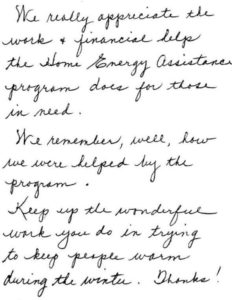 We really appreciate the
work & financial help
the Home Energy Assistance
program does for those
in need.
We remember, well, how
we were helped by the
program.
Keep up the wonderful
work you do in trying
to keep people warm
during the winter. Thanks!